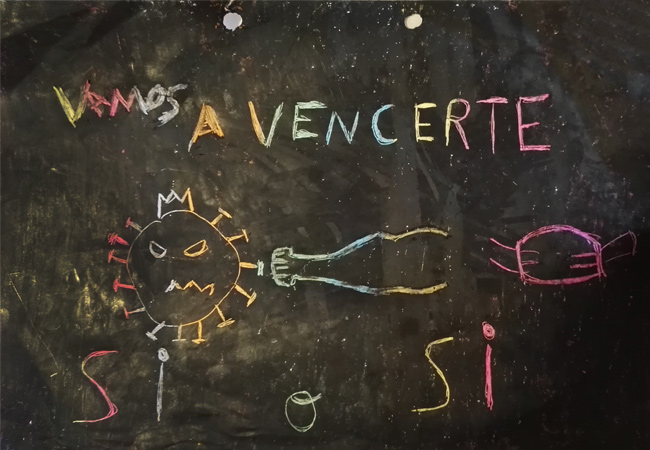 VAMOS A VENCERTE
Si o Si